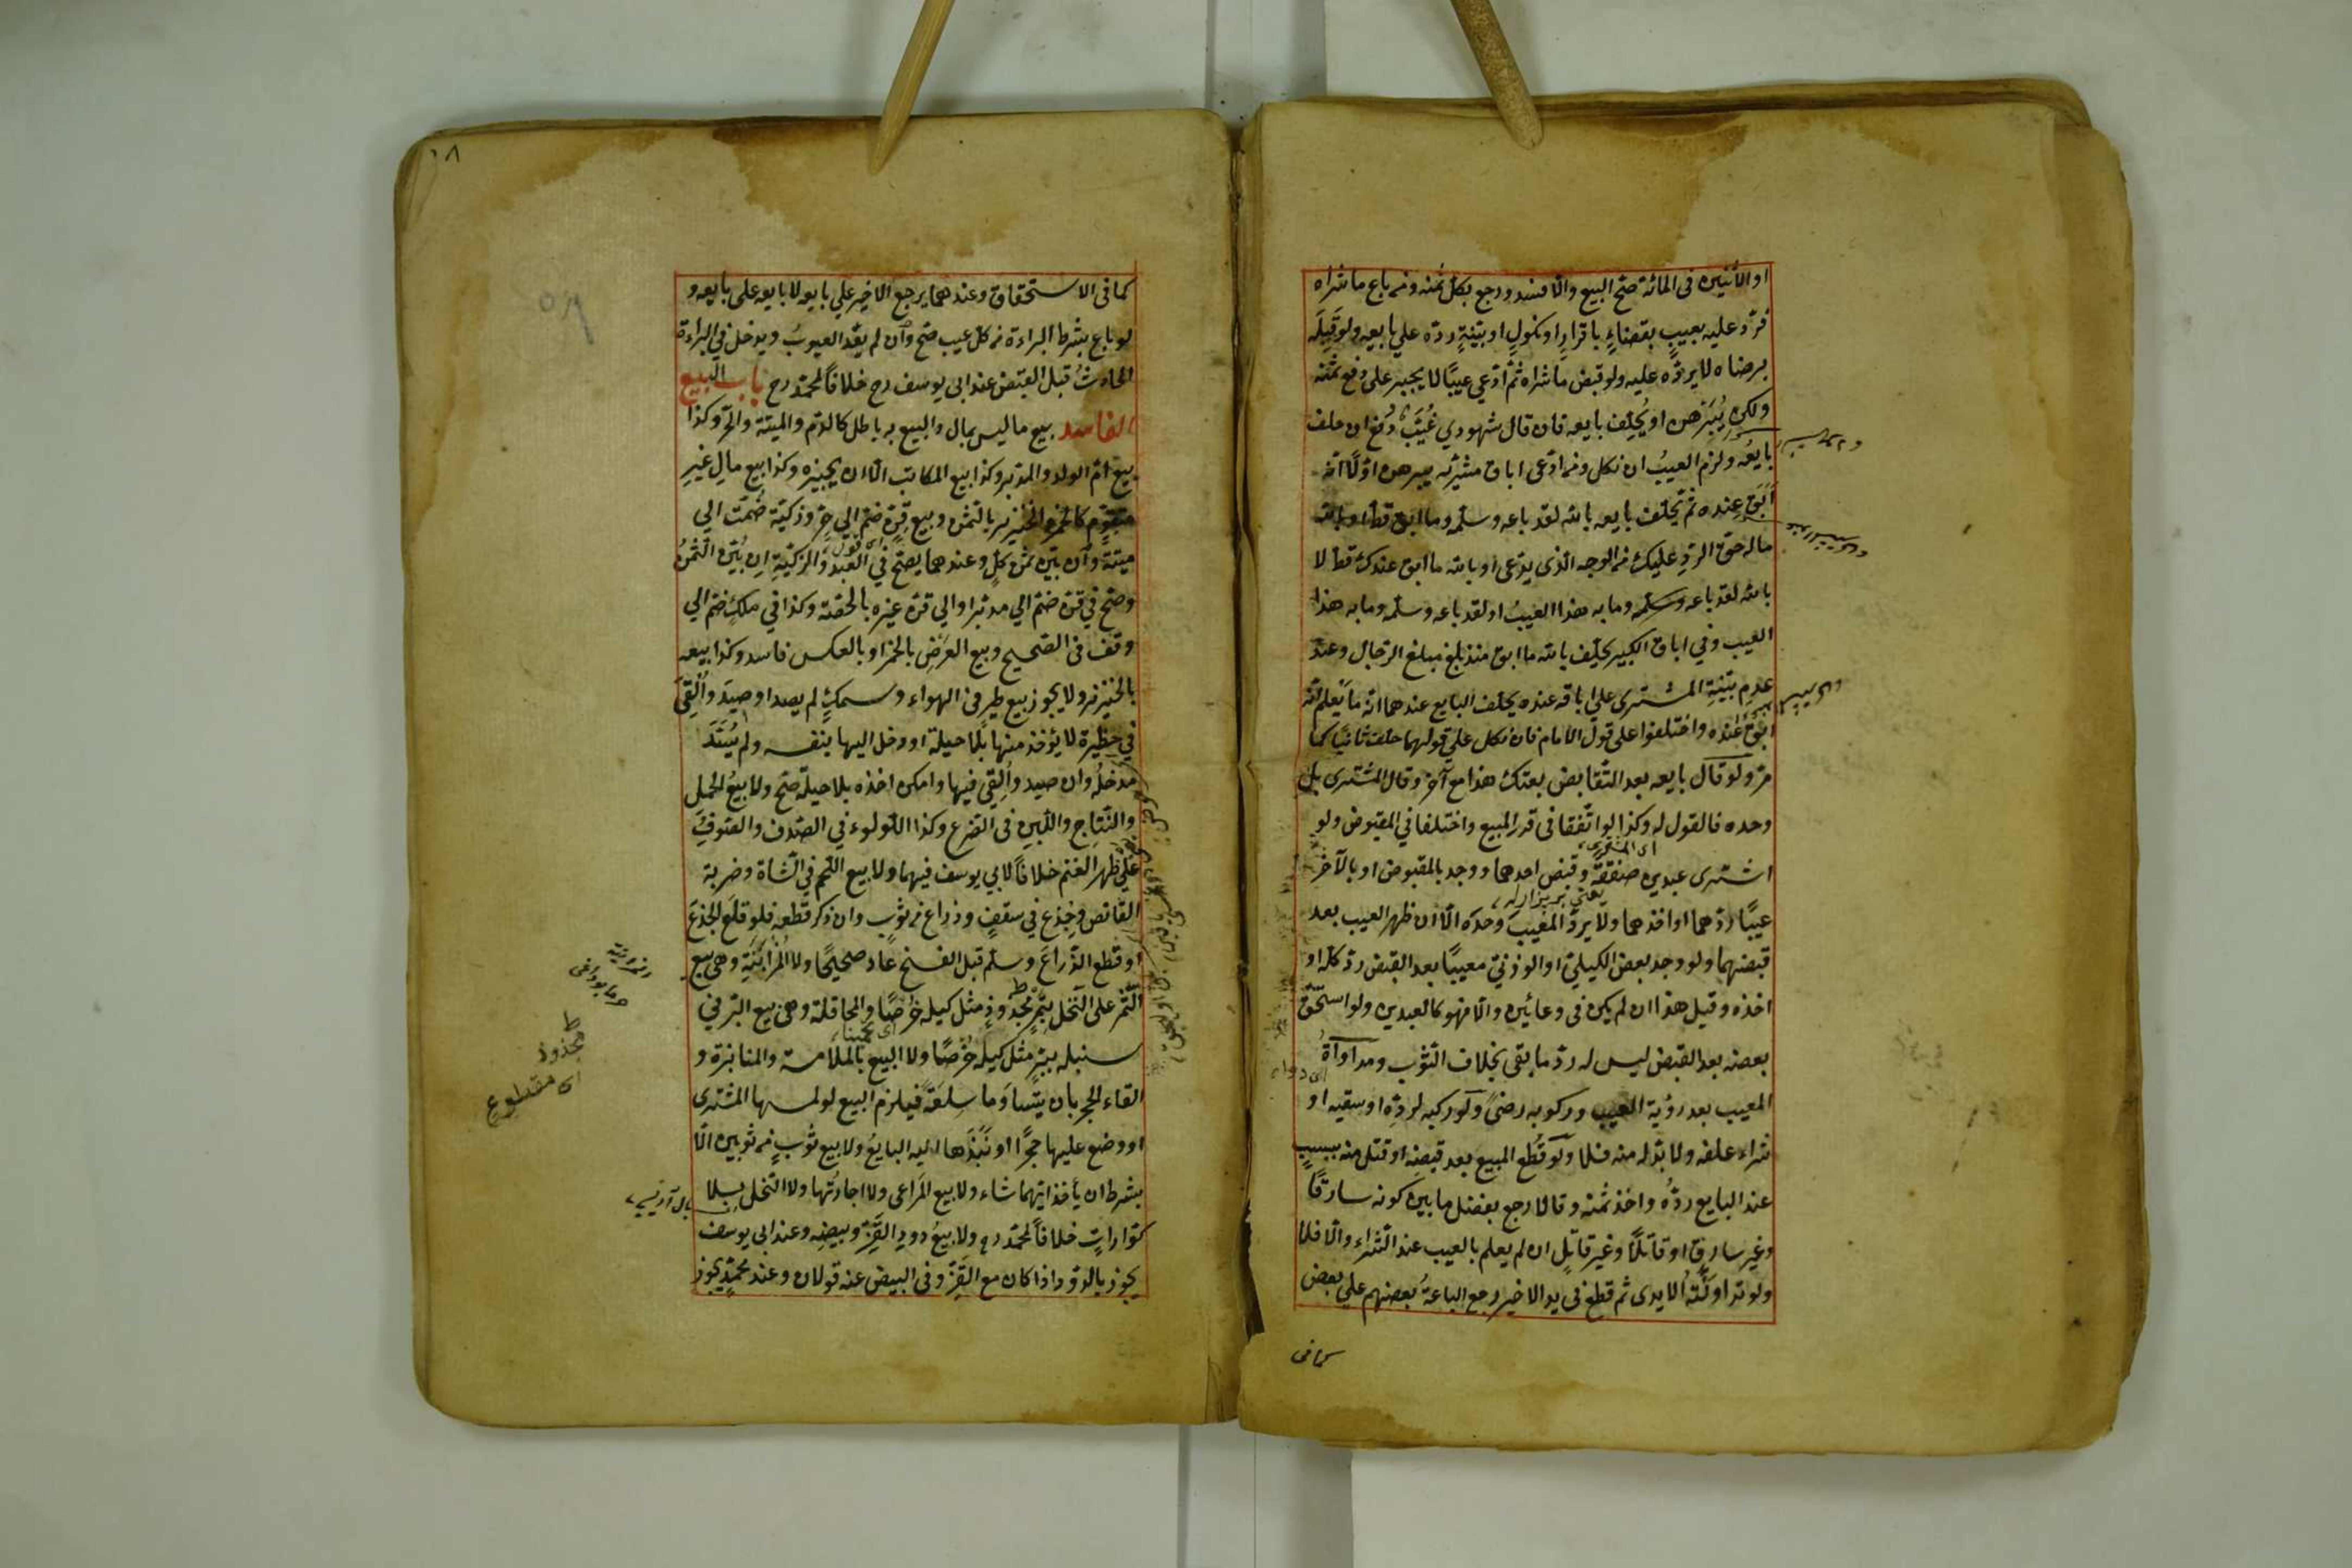 او الاثنين في المائة صح البيع والا فسد ورجع بكل ثمنه ومن باع ما شراه
فرد عليه بعيب بقضاءٍ باقرارٍ او نكولٍ او بينةٍ رده علي بايعه ولو قبله
برضاه لا يرده عليه ولو قبض ما شراه ثم ادعي عيبًا لا يجبر علي دفع ثمنه
ولكن يبرهن او يحلف بايعه فان قال شهودي غُيَّبٌ دفع ان حلف
بايعُه ولزم العيبُ ان نكل ومن ادعى اباق مشريّه يبرهن اوّلًا انه
اَبَقَ عنده ثم يحلف بايعه بالله لقد باعه وسلمه وما ابق قط او بالله
ماله حق الردِّ عليك من الوجه الذى يدّعى او بالله ما ابق عندك قط لا
بالله لقد باعه وسلمه وما به هذا العيبُ او لقد باعه وسلمه وما به هذا
العيب وفي اباق الكبير يحلف بالله ما ابق منذ بلغ مبلغ الرجال وعند
عدمِ بيّنةِ المشترى علي اباقه عنده يحلف البايع عندهما انه ما يعلم انه
ابق عنده واختلفوا على قول الامام فان نكل علي قولهما حلف ثانيًا كما
مرّ ولو قال بايعه بعد التقابض بعتك هذا مع آخر وقال المشترى بل
وحده فالقول له وكذا لو اتفقا فى قدر المبيع واختلفا في المقبوض ولو
اى المشترى
اشترى عبدين صفقةً وقبض احدهما ووجد بالمقبوض او بالآخر
عيبًا ردّهما او اخذهما ولا يرد المعيبَ وحدَه الّا ان ظهر العيب بعد
قبضهما ولو وجد بعض الكيليّ او الوزنيّ معيبًا بعد القبض ردّ كله او
اخذه وقيل هذا ان لم يكن فى وعائين والّا فهو كالعبدين ولو استحقّ
بعضه بعد القبض ليس له ردّ ما بقى بخلاف الثوب ومداواةُ
المعيب بعد رؤية العيب وركوبه رضىً ولو ركبه لردّه او سقيه او
شراء علفه ولا بدّ له منه فلا ولو قُطع المبيع بعد قبضِه او قتل منه بسببٍ
عند البايع ردّهُ واخذ ثمنه وقالا رجع بفضل ما بين كونه سارقًا
وغير سارقٍ او قاتلًا وغير قاتلٍ ان لم يعلم بالعيب عند الشراء والّا فلا
ولو تداولته الايدى ثم قطع فى يد الاخير رجع الباعةُ بعضهم علي بعض
كما فى
كما فى الاستحقاق وعندهما يرجع الاخير علي بايعه لا بايعه على بايعه و
لو باع بشرط البراءة من كل عيب صح وان لم يعدّ العيوبُ ويدخل في البراءة
الحادثُ قبل القبض عند ابى يوسف رح خلافاً لمحمّد رح باب البيع
الفاسد بيع ما ليس بمال والبيع به باطل كالدّم والميتة والحرّ وكذا
بيع امّ الولد والمدبر وكذا بيع المكاتب الّا ان يجيزه وكذا بيع مالٍ غيرِ
متقوّم كالخمر والخنزير بالثمن وبيع قِنّ ضمّ الي حرّ وذكيّة ضُمّت الي
ميتةٍ وان بيّن ثمن كلٍّ وعندهما يصحّ في العبد والزكيّةِ ان بُيّن الثمنُ
وصحّ في قنّ ضمّ الي مدبّر او الي قنّ غيره بالحصّة وكذا في ملكٍ ضم الي
وقف فى الصحيح وبيع العَرْضِ بالخمر او بالعكس فاسد وكذا بيعه
بالخنزير ولا يجوز بيع طيرٍ فى الهواء وسمكٍ لم يصد او صِيدَ واُلقى
في حظيرة لا يؤخذ منها بلا حيلة او دخل اليها بنفسه ولم يُسَدّ
مدخلُه وان صيد واُلقى فيها وامكن اخذه بلا حيلة صحّ ولا بيعُ الحمل
والنتاج واللبن فى الضرع وكذا اللؤلوء في الصّدف والصّوفُ
علي ظهر الغنم خلافاً لابي يوسف فيهما ولا بيع اللحم في الشاة وضربة
القانص وجِذعٍ في سقفٍ وذراعٍ من ثوبٍ وان ذكر قَطعه فلو قلَعَ الجذعَ
او قطع الذّراعَ وسلم قبل الفسخ عاد صحيحًا ولا المُزابَنَةِ وهى بيع
الثّمر على النخل بتمرٍ مجذوذٍ مثل كيله خَرْصًا والمحاقلة وهى بيع البرّ في
سنبله ببرٍّ مثل كيله خَرْصًا ولا البيع بالملامسة والمنابذة و
القاء الحجر بان يتساوَما سِلعَةً فيلزم البيع لو لمسها المشترى
او وضع عليها حجرًا او نَبَذَها اليه البايعُ ولا بيع ثوبٍ من ثوبين الّا
بشرط ان يأخذ ايّهما شاء ولا بيع المَراعى ولا اجارتُها ولا النحل بلا
كوّاراتٍ خلافاً لمحمّد رح ولا بيعُ دودِ القَزّ وبيضِه وعند ابى يوسف
يجوز بالدّود اذا كان مع القزّ وفى البيض عنه قولان وعند محمّدٍ يجوز
مجذوذ
اى مقطوع
١٨